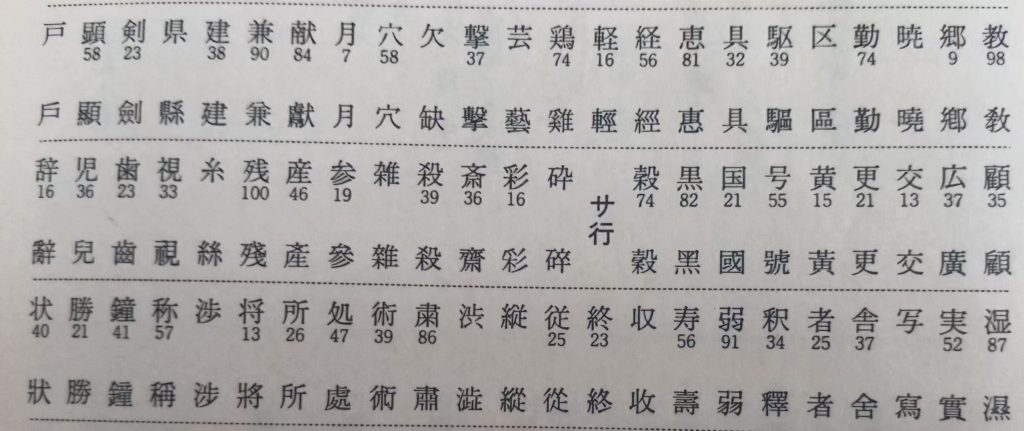 教 郷 暁 勤 区 駆 具 恵 経 軽 鶏 芸 撃 欠 穴 月 献 兼 建 県 剣 顕 戸
98 9 74 39 32 81 56 16 74 37 58 7 84 90 38 23 58
敎 鄕 曉 勤 區 驅 具 惠 經 輕 雞 藝 擊 缺 穴 月 獻 兼 建 縣 劍 顯 戶
顧 広 交 更 黄 号 国 黒 穀 サ行 砕 彩 斎 殺 雑 参 産 残 糸 視 歯 児 辞
35 37 13 21 15 55 21 82 74 16 36 39 19 46 100 33 23 36 16
顧 廣 交 更 黃 號 國 黑 穀 碎 彩 齋 殺 雜 參 產 殘 絲 視 齒 兒 辭
湿 実 写 舎 者 釈 弱 寿 収 終 従 縦 渋 粛 術 処 所 将 渉 称 鐘 勝 状
87 52 37 25 34 91 56 23 25 86 39 47 26 13 57 41 21 40
濕 實 寫 舍 者 釋 弱 壽 收 終 從 縱 澁 肅 術 處 所 將 涉 稱 鐘 勝 狀